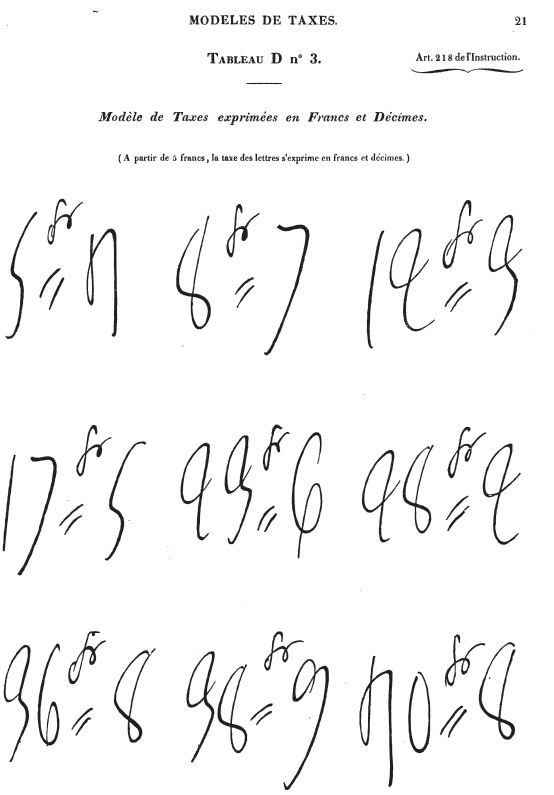 MODELES DE TAXES. 21
TABLEAU D n° 3. Art. 218 de l'Instruction.
Modèle de Taxes exprimées en Francs et Décimes.
( A partir de 5 francs, la taxe des lettres s'exprime en francs et décimes. )
5 fr // 4 8 fr // 7 12 fr // 3
17 fr // 5 23 fr // 6 28 fr // 2
36 fr // 8 38 fr // 9 40 fr // 8